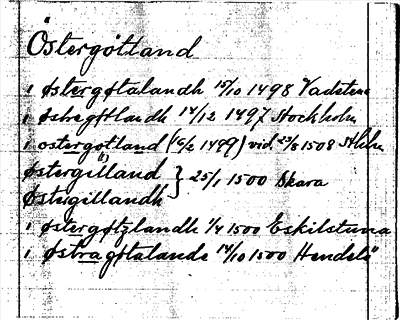 Östergötland
i østergøtalandh 15/10 1498 Vadstena
i østregøtlandh 14/12 1497 Stockholm
i ostergotland (6/2 1499) vid. 23/8 1508 Sthlm
østergilland } 25/1 1500 Skara
østergillandh
i østergøtzlandh 1/4 1500 Eskilstuna
i østragøtalande 14/10 1500 Hendelö